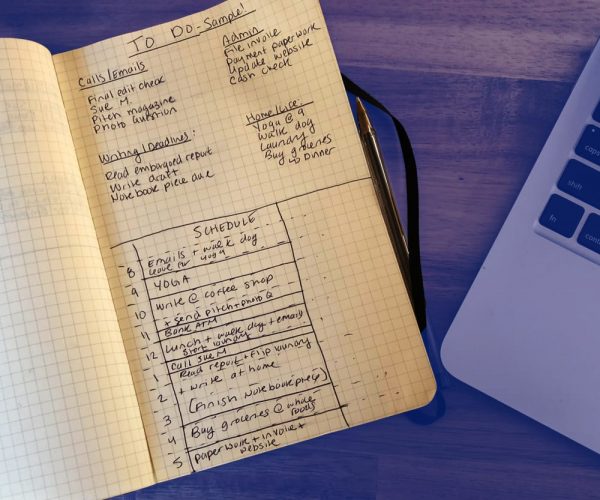 TO DO - Sample!
Calls/Emails
Final edit check
Sue M.
Pitch magazine
Photo question
Admin
File invoice
Payment paperwork
Update website
Cash check
Writing/Deadlines:
Read embargoed report
Write draft
Notebook piece due
Home/Life:
Yoga @ 9
Walk dog
Laundry
Buy groceries
Dinner
SCHEDULE
8 Emails + walk dog
Leave for yoga
9 YOGA
10 Write @ coffee shop
+ send pitch + photo Q
11 Bank ATM
12 Lunch + walk dog + email
Start laundry
Call Sue M
1 Read report + flip laundry
2 + write at home
3 (Finish notebook piece)
4 Buy groceries @ whole
foods
5 paperwork + invoice +
website
caps
shift
fn